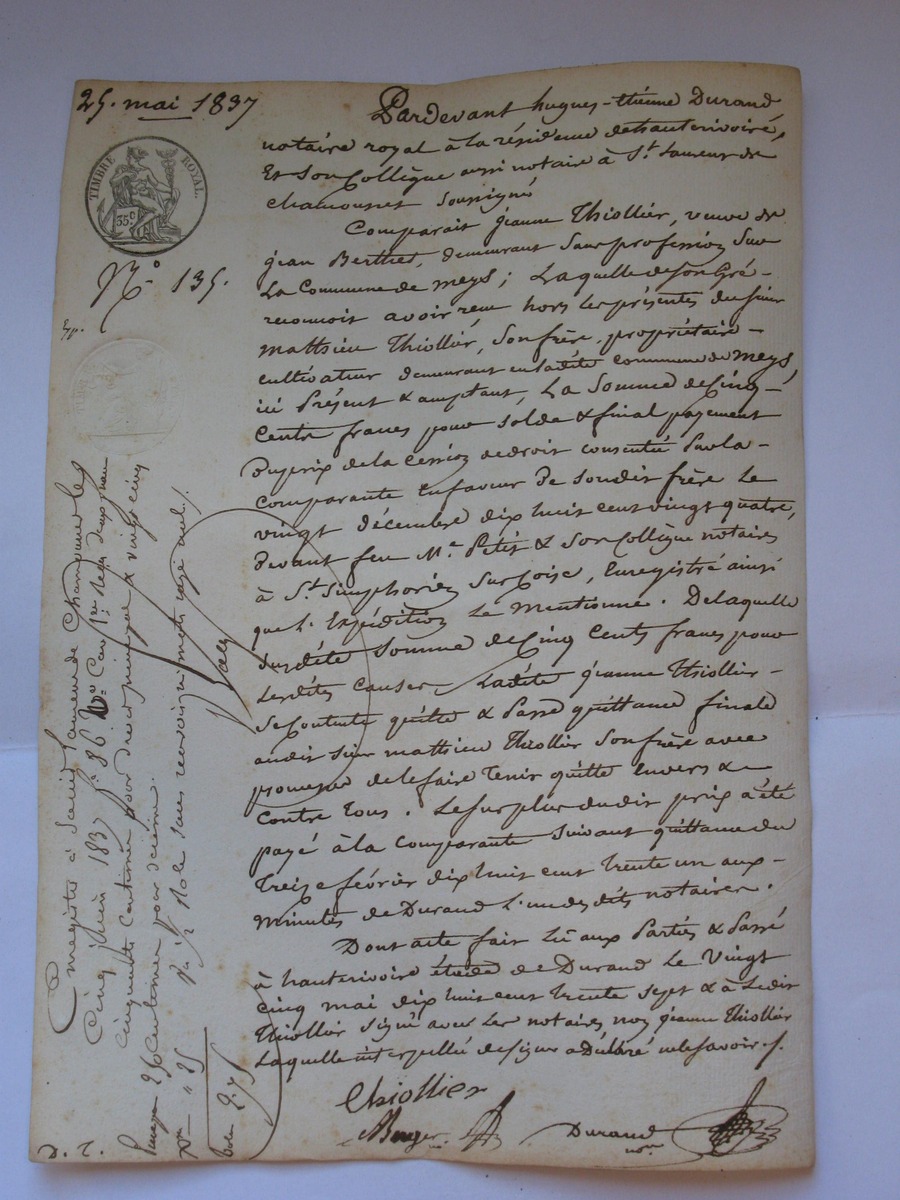 25. mai 1837
TIMBRE ROYAL.
35c
N.o 135.
Pardevant hugues-étienne Durand
notaire royal à la résidence de hauterivoire,
Et Son Collègue aussi notaire à St. Laurent de
chamousset Soussigné
Comparait jeanne Thiollier, veuve de
jean Berthet, demeurant Sans profession Sur
La Commune de meys; Laquelle de Son Gré-
reconnoit avoir reçu hors les présentes du sieur
matthieu Thiollier, Son frère, propriétaire-
cultivateur demeurant en ladite commune de meys,
ici Présent & acceptant, La Somme de Cinq-
Cents francs pour solde & final payement
du prix de la Cession de droit consentie Par la-
comparante En faveur De Son dit frère Le
vingt décembre dix huit cent vingt quatre,
Devant feu Me. Petit & Son Collègue notaires
à St. Simphorien Sur Coise, Enregistré ainsi
que L'Expédition Le mentionne. De laquelle
Susdite Somme de Cinq Cents francs pour
Lesdites Causes Ladite jeanne Thiollier-
Se Contente quitte & Passe quittance finale
audit Sieur matthieu Thiollier Son frère avec
promesse de le faire Tenir quitte Envers &
Contre Tous. Le Surplus du dit prix a été
payé à la Comparante Suivant quittance du
Treize février dix huit cent trente un aux-
minutes de Durand L'un desdits notaires.
Dont acte fait Lû aux Parties & Passé
à hauterivoire étude de Durand Le Vingt
Cinq mai dix huit cent trente sept & à Ledit
Thiollier Signé avec Les notaires non jeanne Thiollier
Laquelle interpellée de signer a Déclaré ne le Savoir ./.
Thiollier
Durand
Enregistré à Saint Laurent de Chamousset le
Cinq juin 1837 f.o 86 Vo. Cas 1re Reçu deux francs
cinquante Centimes pour decime vingt cinq
Centimes pour décime.
Role sans renvoi ni mots rayé nuls ./.
25
2.75
D. T.